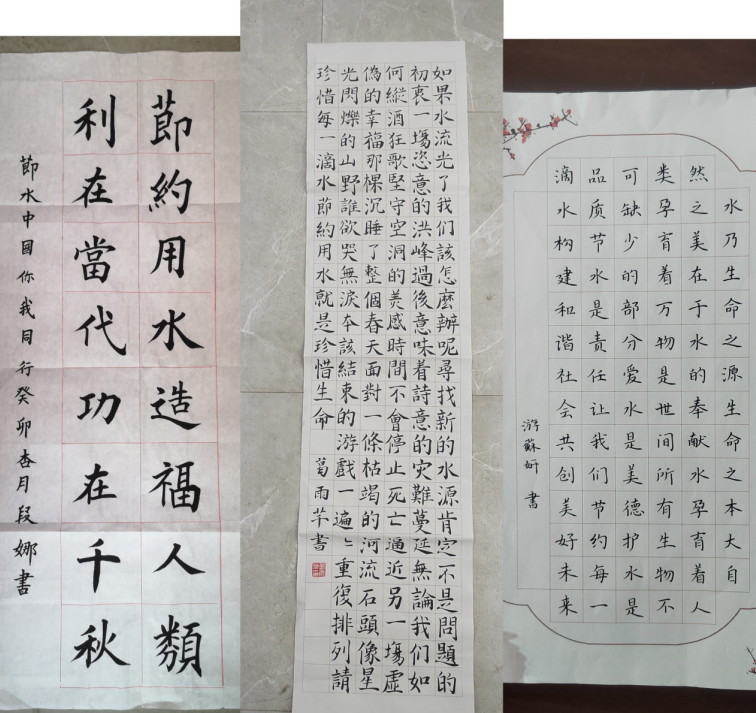 節約用水造福人類
利在當代功在千秋
節水中國你我同行癸卯杏月段娜書
如果水流光了我們該怎麼辦呢尋找新的水源肯定不是問題的
初衷一場恣意的洪峰過後意味着詩意的灾難蔓延無論我們如
何縱酒狂歌堅守空洞的美感時間不會停止死亡逼近另一場虛
偽的幸福那棵沉睡了整個春天面對一條枯竭的河流石頭像星
光閃爍的山野誰欲哭無淚本該結束的游戲一遍〻重復排列請
珍惜每一滴水節約用水就是珍惜生命 葛雨芊書
水乃生命之源生命之本大自
然之美在于水的奉献水孕育着人
类孕育着万物是世间所有生物不
可缺少的部分爱水是美德护水是
品质节水是责任让我们节约每一
滴水构建和谐社会共创美好未来
游蘇妍書